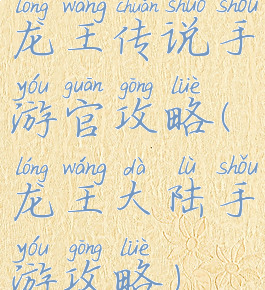 lóng wáng chuán shuō shǒu
龙王传说手
yóu guān gōng lüè
游官攻略(
lóng wáng dà lù shǒu
龙王大陆手
yóu gōng lüè
游攻略)